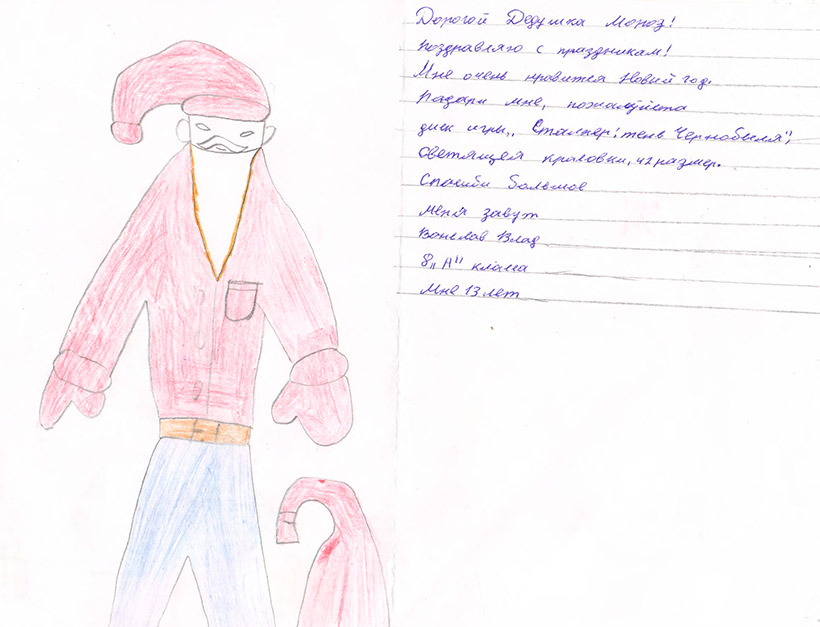 Дорогой Дедушка Мороз!
Поздравляю с праздникам!
Мне очень нравится Новый год.
Падари мне, пожалуйста
диск игры,, Сталкер: тень Чернобыля",
светящея красовки, 42 размер.
Спасиби большое
меня завут
Влад
8,, А" класса
Мне 13 лет